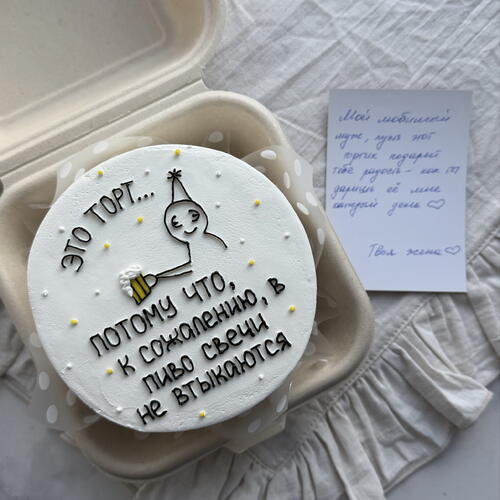 ЭТО ТОРТ...
ПОТОМУ ЧТО,
К СОЖАЛЕНИЮ, В
ПИВО СВЕЧИ
НЕ ВТЫКАЮТСЯ
Мой любимый
муж, пусть этот
тортик подарит
тебе радость - как ты
даришь её мне
каждый день ♡
Твоя жена ♡